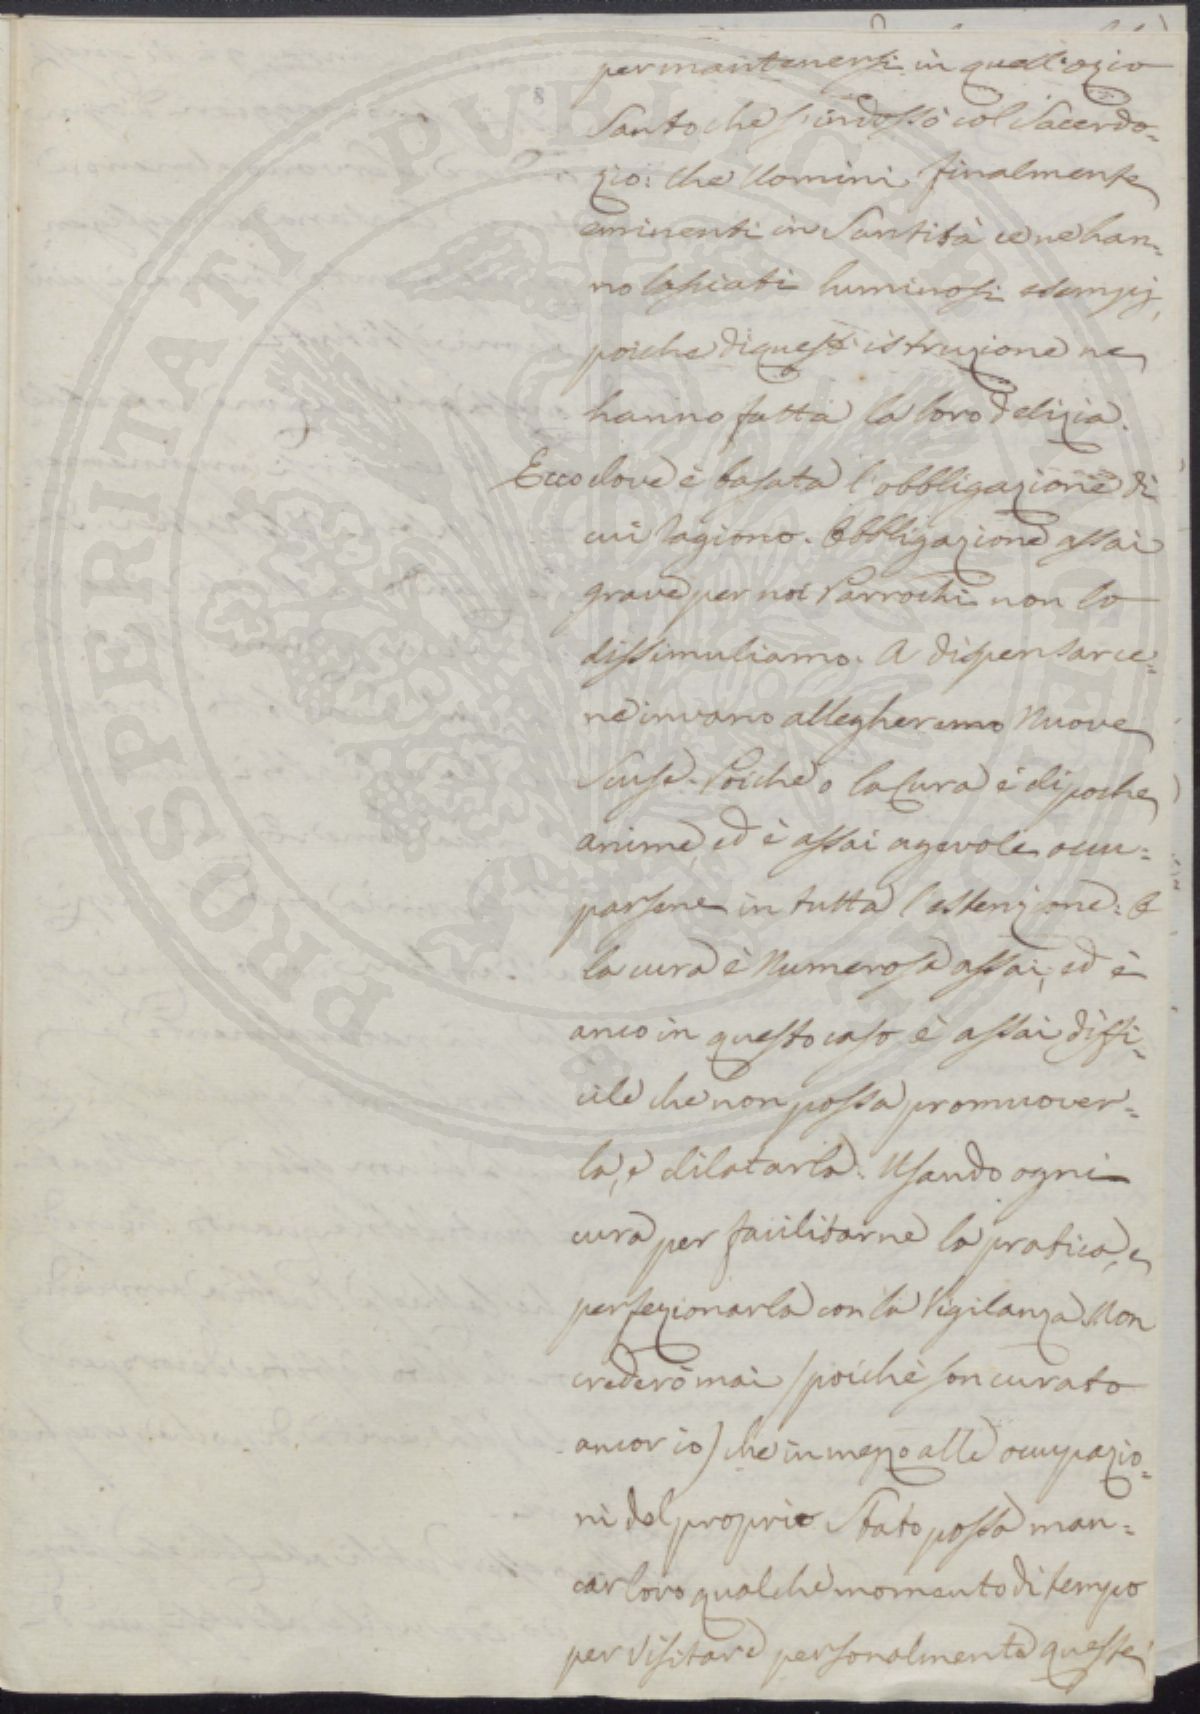 PROSPERITATI PUBLICAE AUGENDAE
per mantenersi in quell'ozio
Santo che s'indossò col Sacerdo=
zio: che Uomini finalmente
eminenti in Santità ce ne han=
no lasciati luminosi esempij,
poiche di quest'istruzione ne
hanno fatta la loro delizia.
Ecco dove è basata l'obbligazione di
cui ragiono. Obbligazione assai
grave per noi Parrochi non lo
dissimuliamo. A dispensarce=
ne invano allegheremo Nuove
Scuse. Poichè o la Cura è di poche
anime, ed è assai agevole occu=
parsene in tutta l'estenzione: O
la cura è Numerosa assai, ed è
anco in questo caso è assai diffi=
cile che non possa promuover=
la, e dilatarla. Usando ogni
cura per facilitarne la pratica, e
perfezionarla con la Vigilanza. Non
crederò mai (poichè son curato
ancor io) che in mezzo alle occupazio=
ni del proprio Stato possa man=
car loro qualche momento di tempo
per Visitare personalmente queste